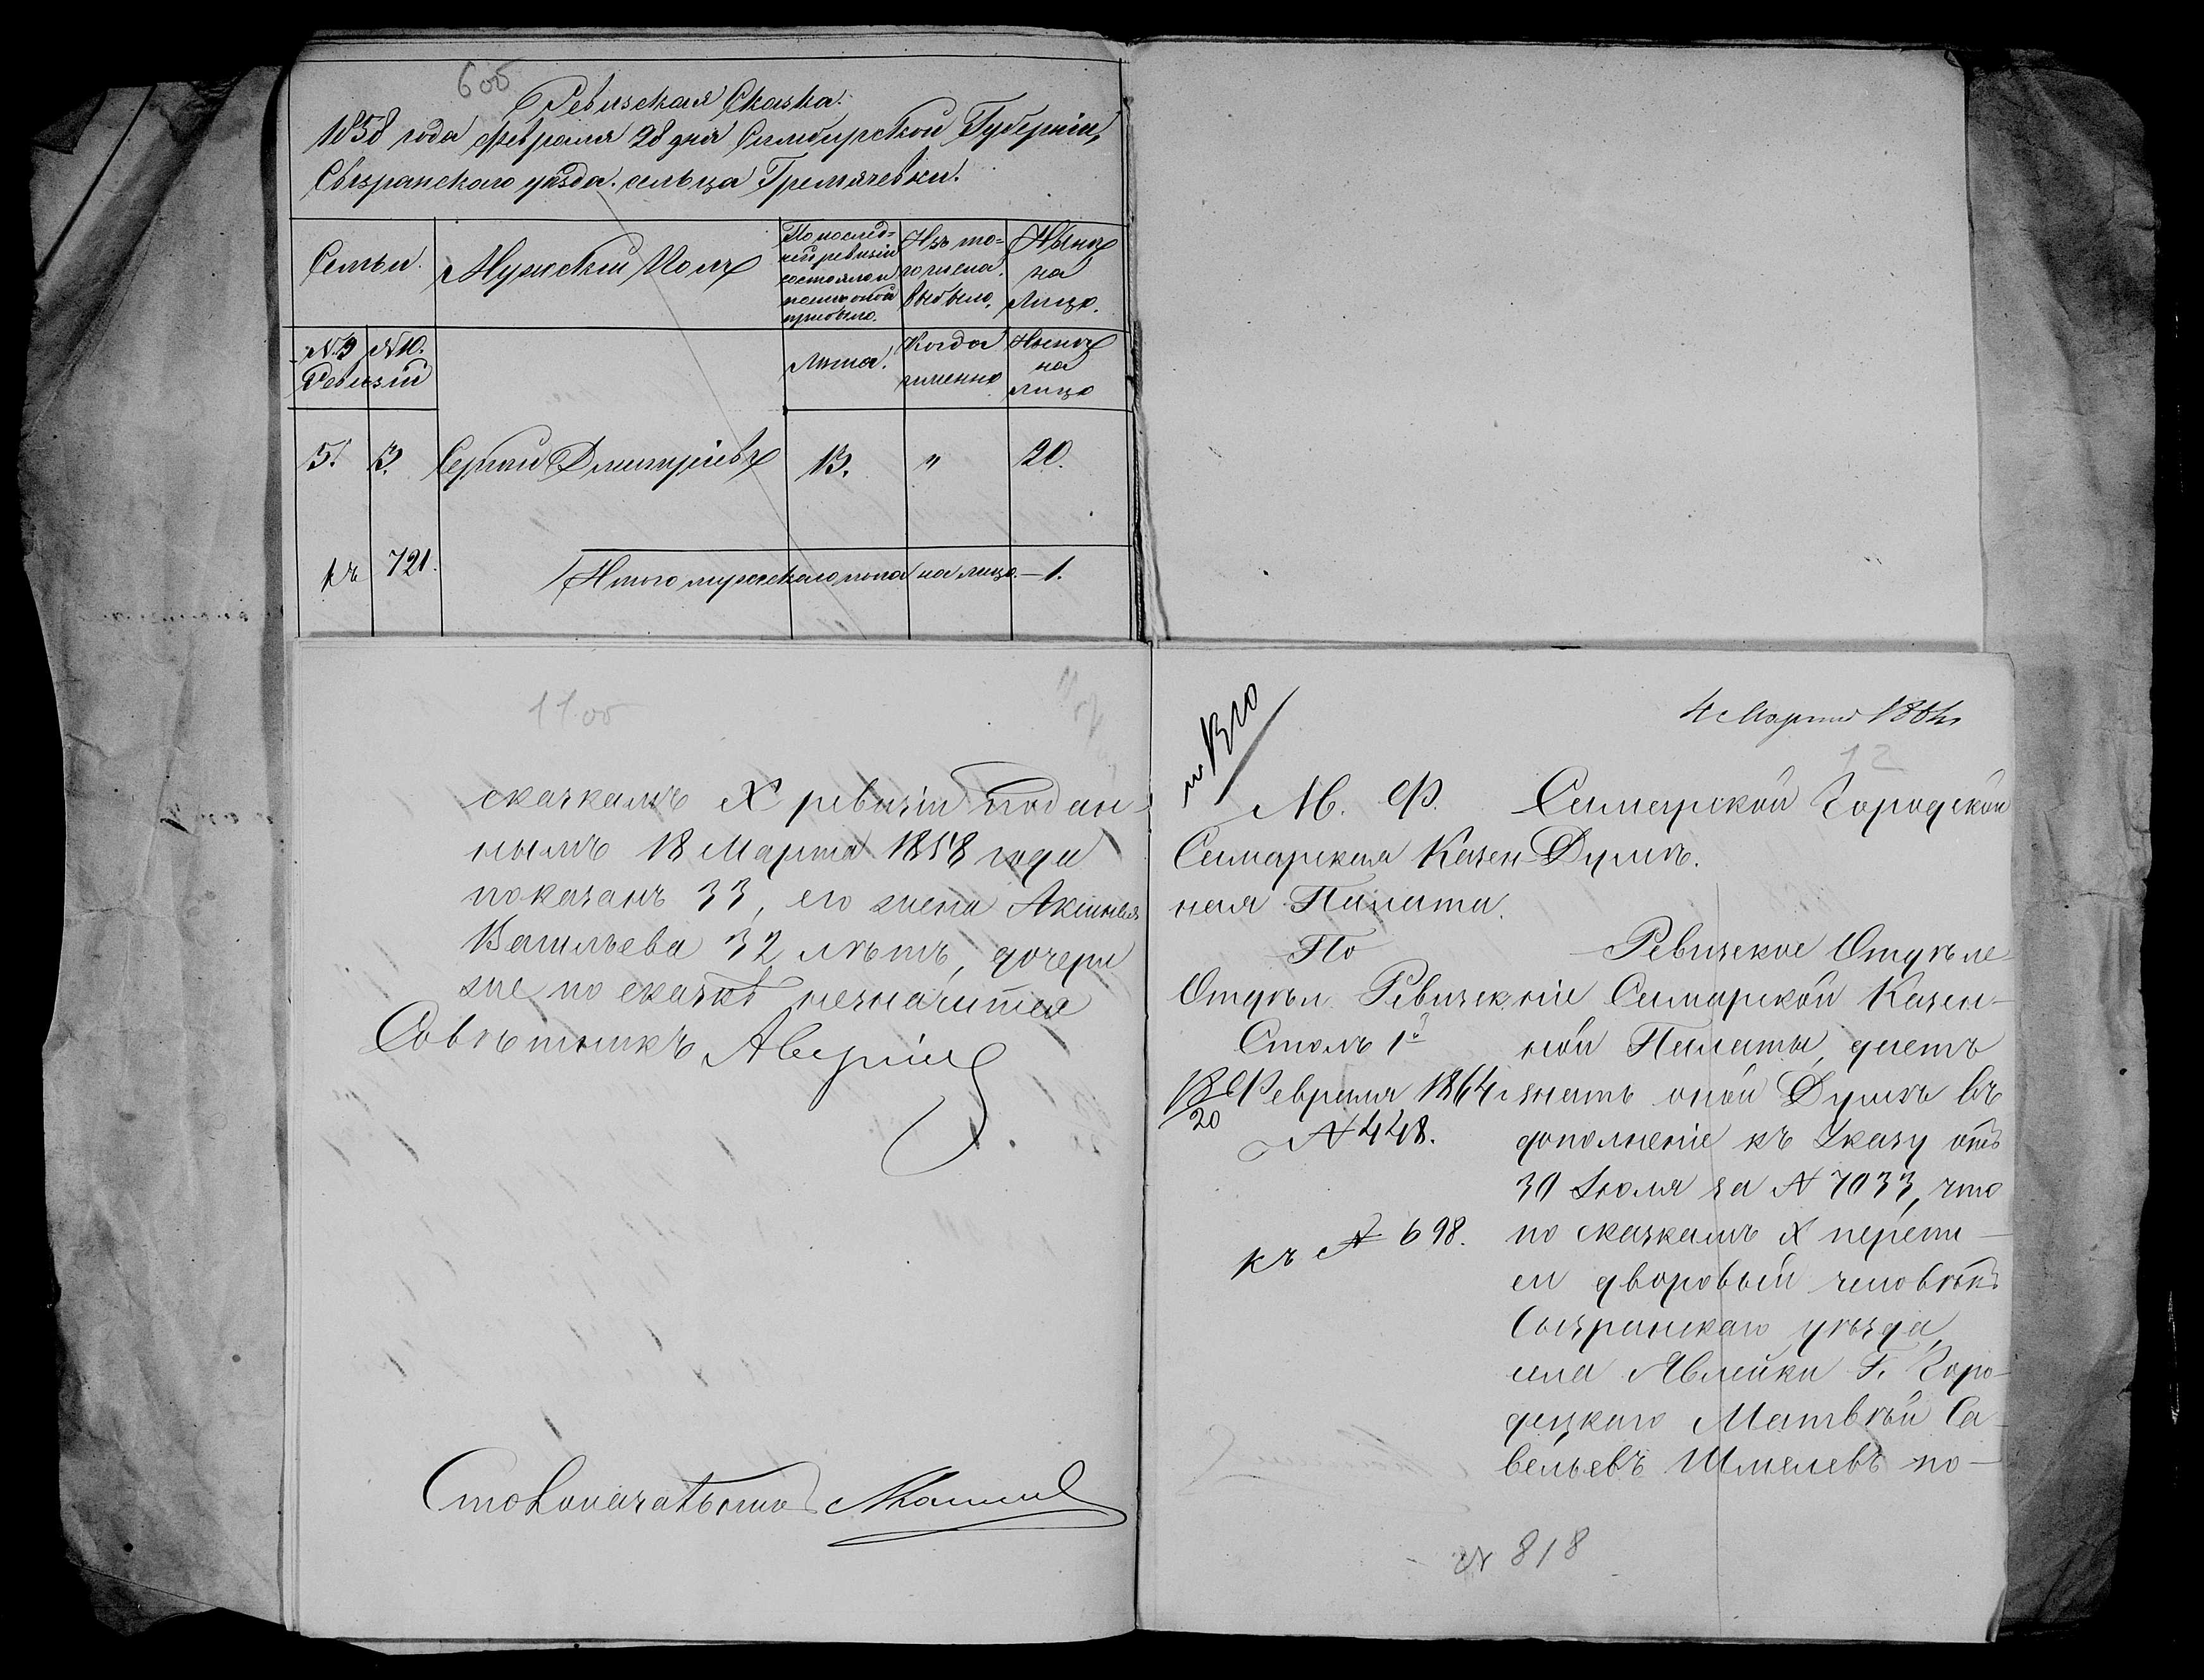 6 об
Ревизская Сказка.
1858 года Февраля 28 дня Симбирской Губерніи,
Сызранскаго уѣзда. сельца Гремячевки.
Семьи.
Мужескій Полъ
По послѣд=
ней ревизіи
состояло и
послѣ оной
прибыло.
Изъ то=
го числа
выбыло.
Нынѣ
на
Лицо.
№ 9 № 10.
Ревизій
Лѣта.
Когда
именно
Нынѣ
на
лицо
5. 3. Сергѣй Дмитріевъ 13. " 20.
къ 721. Итого мужескаго пола на лицо — 1.
11 об
сказкамъ X ревизіи подан-
нымъ 18 Марта 1858 года
показанъ 33, его жена Аксинья
Васильева 32 лѣтъ, дочери
же по сказкѣ незначится
Совѣтникъ
Столоначальникъ
4 Марта 1864
12
М. Ф.
Самарская Казен-
ная Палата.
По
Отдѣл. Ревизск.
Столъ 1й
18/20 Февраля 1864 г
№ 448.
къ № 698.
Самарской Городской
Думѣ.
Ревизское Отдѣле-
ніе Самарской Казен-
ной Палаты, даетъ
знать оной Думѣ въ
дополненіе къ Указу отъ
30 Іюля за № 7033, что
по сказкамъ X переписи
дворовый человѣкъ
Сызранскаго уѣзда,
села Явлейки Г. Горо-
децкаго Матвѣй Са-
вельевъ Шмелевъ по-
№ 818